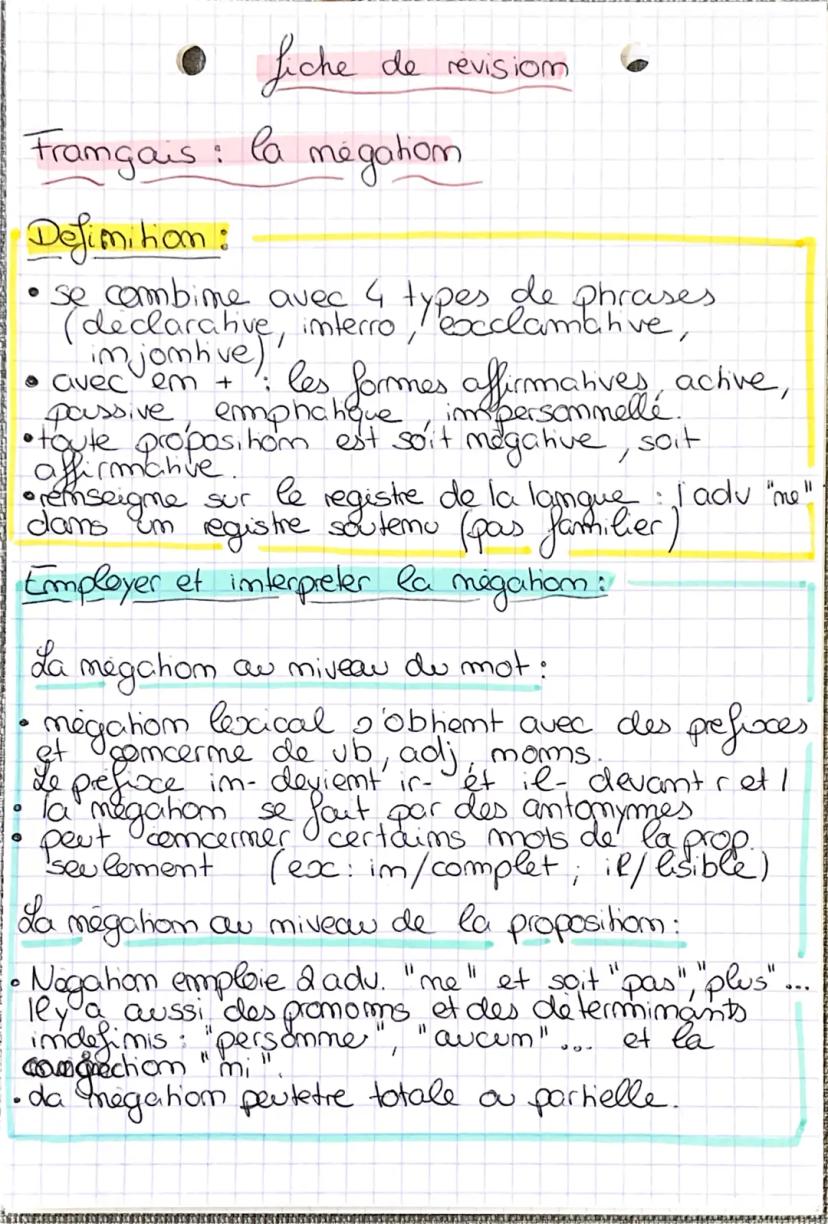 fiche de révision
Français : la négation
Définition :
• se combine avec 4 types de phrases
(déclarative, interro, exclamative,
injontive)
• avec en + : les formes affirmatives, active,
passive, emphatique, impersonnelle.
• toute proposition est soit négative, soit
affirmative.
• renseigne sur le registre de la langue : l'adv "ne"
dans un registre soutenu (pas familier)
Employer et interpreter la négation :
La négation au niveau du mot :
• négation lexical s'obtient avec des prefixes
et concerne de vb, adj, noms.
Le préfixe in- devient ir- et il- devant r et l
• la négation se fait par des antonymes
• peut concerner certains mots de la prop.
seulement (ex : in/complet ; il/lisible)
La négation au niveau de la proposition :
• Négation emploie 2 adv. "ne" et soit "pas", "plus"...
Il y a aussi des pronoms et des déterminants
indéfinis : "personne", "aucun"... et la
"ni".
• La négation peut etre totale ou partielle.